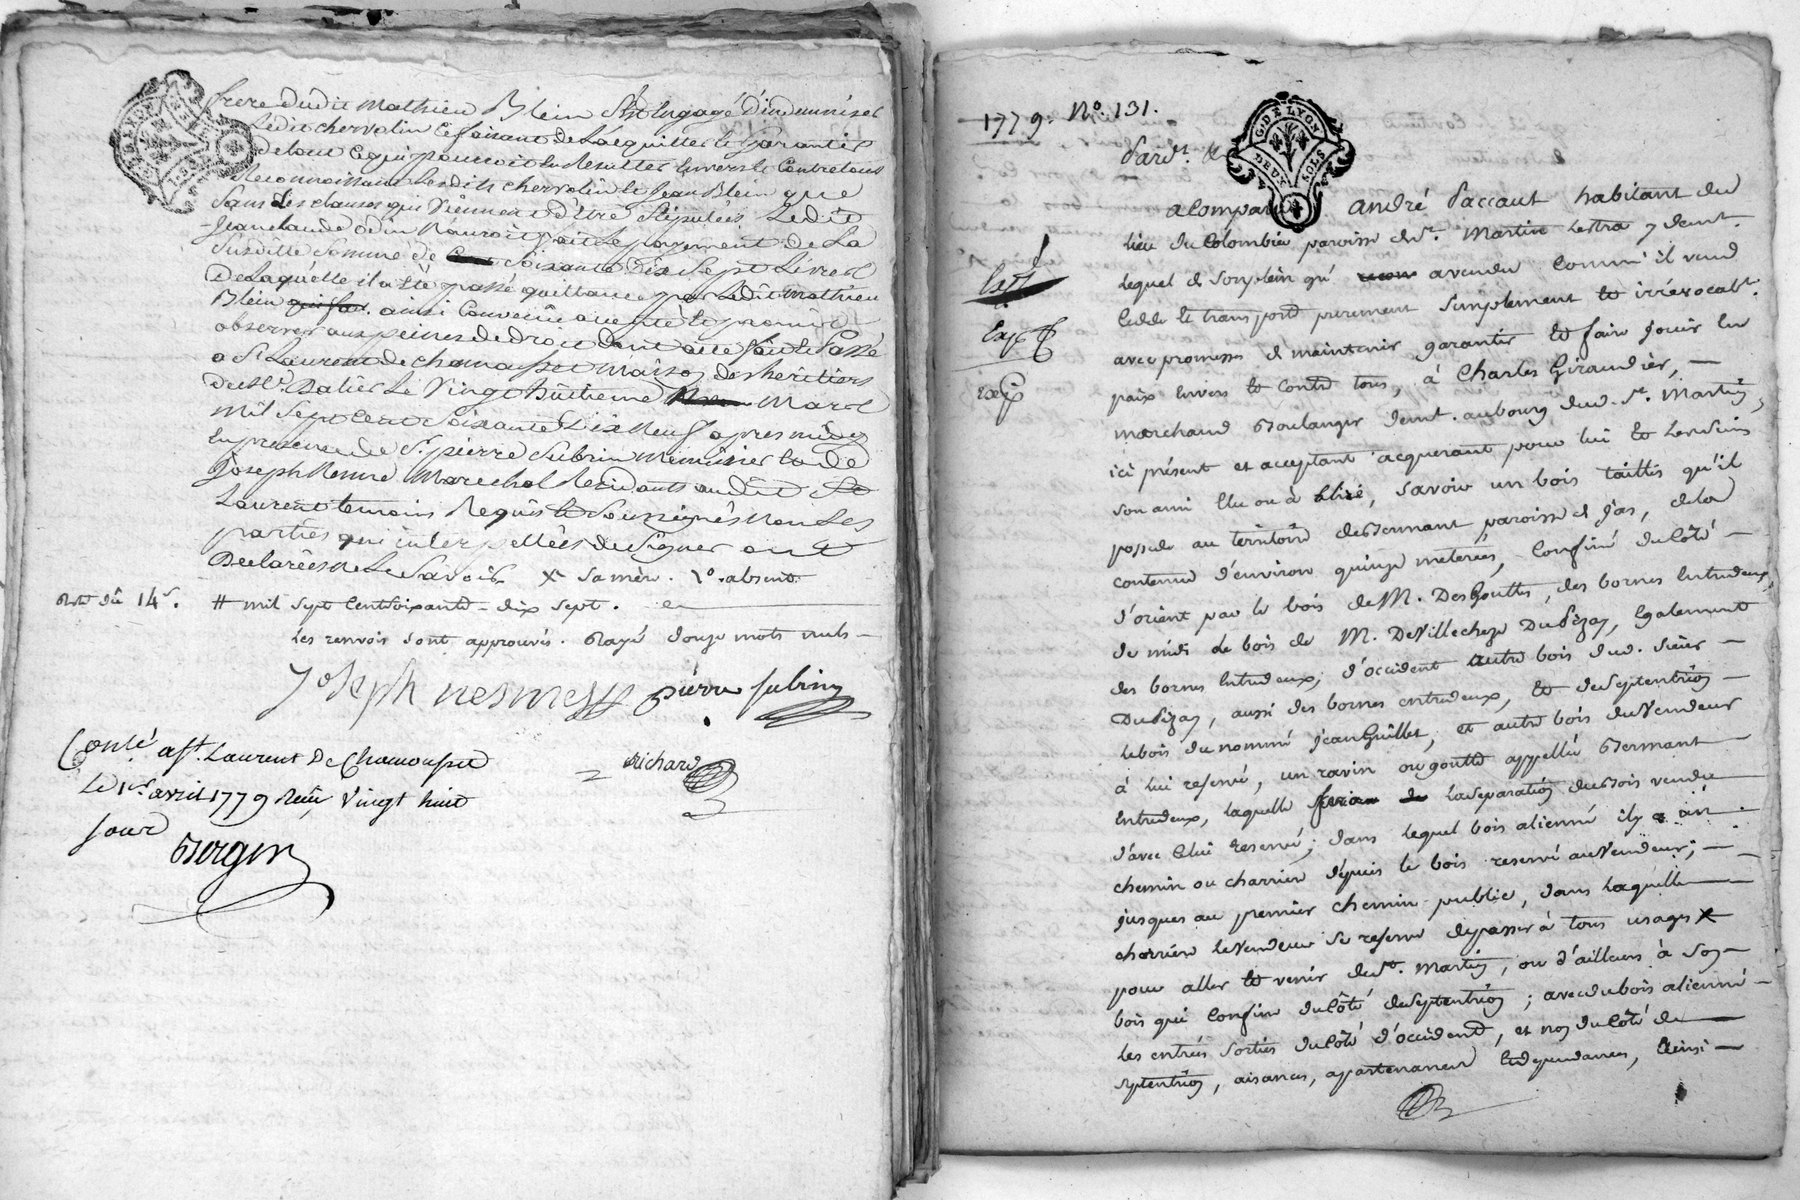 frere dudit Mathieu Blein s'est engagé d'indemniser
ledit chervolin ce faisant de l'acquitter et garantir
de tout ce qui pourroit en resulter envers et contre tous
reconnoissant lesdits chervolin et Jean Blein que
sans les clauses qui viennent d'être stipulées ledit
Jean claude odin n'auroit fait le payement de la
susditte somme de soixante dix sept Livres
de laquelle il a été passé quittance par ledit Mathieu
Blein ainsi convenu accepté et promis
observer aux peines de droit dont acte fait et Passé
a St Laurent de chamousset maison des heritiers
du Sr. Balier Le Vingt huitieme Mars
mil sept cent soixante dix neuf apres midy
En presence de Sr. pierre Subrin Menuisier et de
Joseph Nesme Marechal Residants audit St
Laurent temoins Requis et soussignés non Les
parties qui interpellées de signer ont
Declarées ne Le savoir x sa mère. absent
14 s. # mil sept cent soixante-dix sept.
Les renvois sont approuvés. Rayé douze mots nuls
Joseph nesme pierre subrin
Conlé a St. Laurent De Chamousset Richard
Le 1er avril 1779 Reçu Vingt huit
sous
Bergin
1779. No. 131.
Pardt. &
G. DE LYON
DEUX SOLS
a comparu andré Paccaut habitant du
lieu du Colombier paroisse de St. Martin Lestra y demt.
lequel de son plein gré a vendu comme il vend
cedde et transporte purement simplement et irrévocablt.
avec promesse de maintenir garantir et faire jouir en
paix envers et contre tous, à Charles Giraudier,
marchand Boulanger demt. au bourg dud. St. Martin,
ici présent et acceptant acquerant pour lui et les siens
son ami élu ou à élire, savoir un bois taillis qu'il
possede au territoire de Bernant paroisse de Jas, de la
contenue d'environ quinze meterées, confiné du côté
d'orient par le bois de M. DesGouttes, des bornes entredeux,
de midi le bois de M. De Villecheze Du Pizay, également
des bornes entredeux; d'occident autre bois dud. sieur
Du Pizay, aussi des bornes entredeux, et de septentrion
le bois du nommé Jean Guillet, et autre bois du vendeur
à lui reservé, un ravin ou goutte appellée Bernant
entredeux, laquelle la separation du Bois vendu
d'avec celui reservé; dans lequel bois aliéné il y a un
chemin ou charriere depuis le bois reservé au Vendeur,
jusques au premier chemin public, dans laquelle
charriere le vendeur se reserve de passer à tous usages x
pour aller et venir de St. Martin, ou d'ailleurs à son
bois qui confine du côté de septentrion; avec du bois aliéné
les entrées sorties du côté d'occident, et non du côté de
septentrion, aisances, appartenances et dependances, ainsi